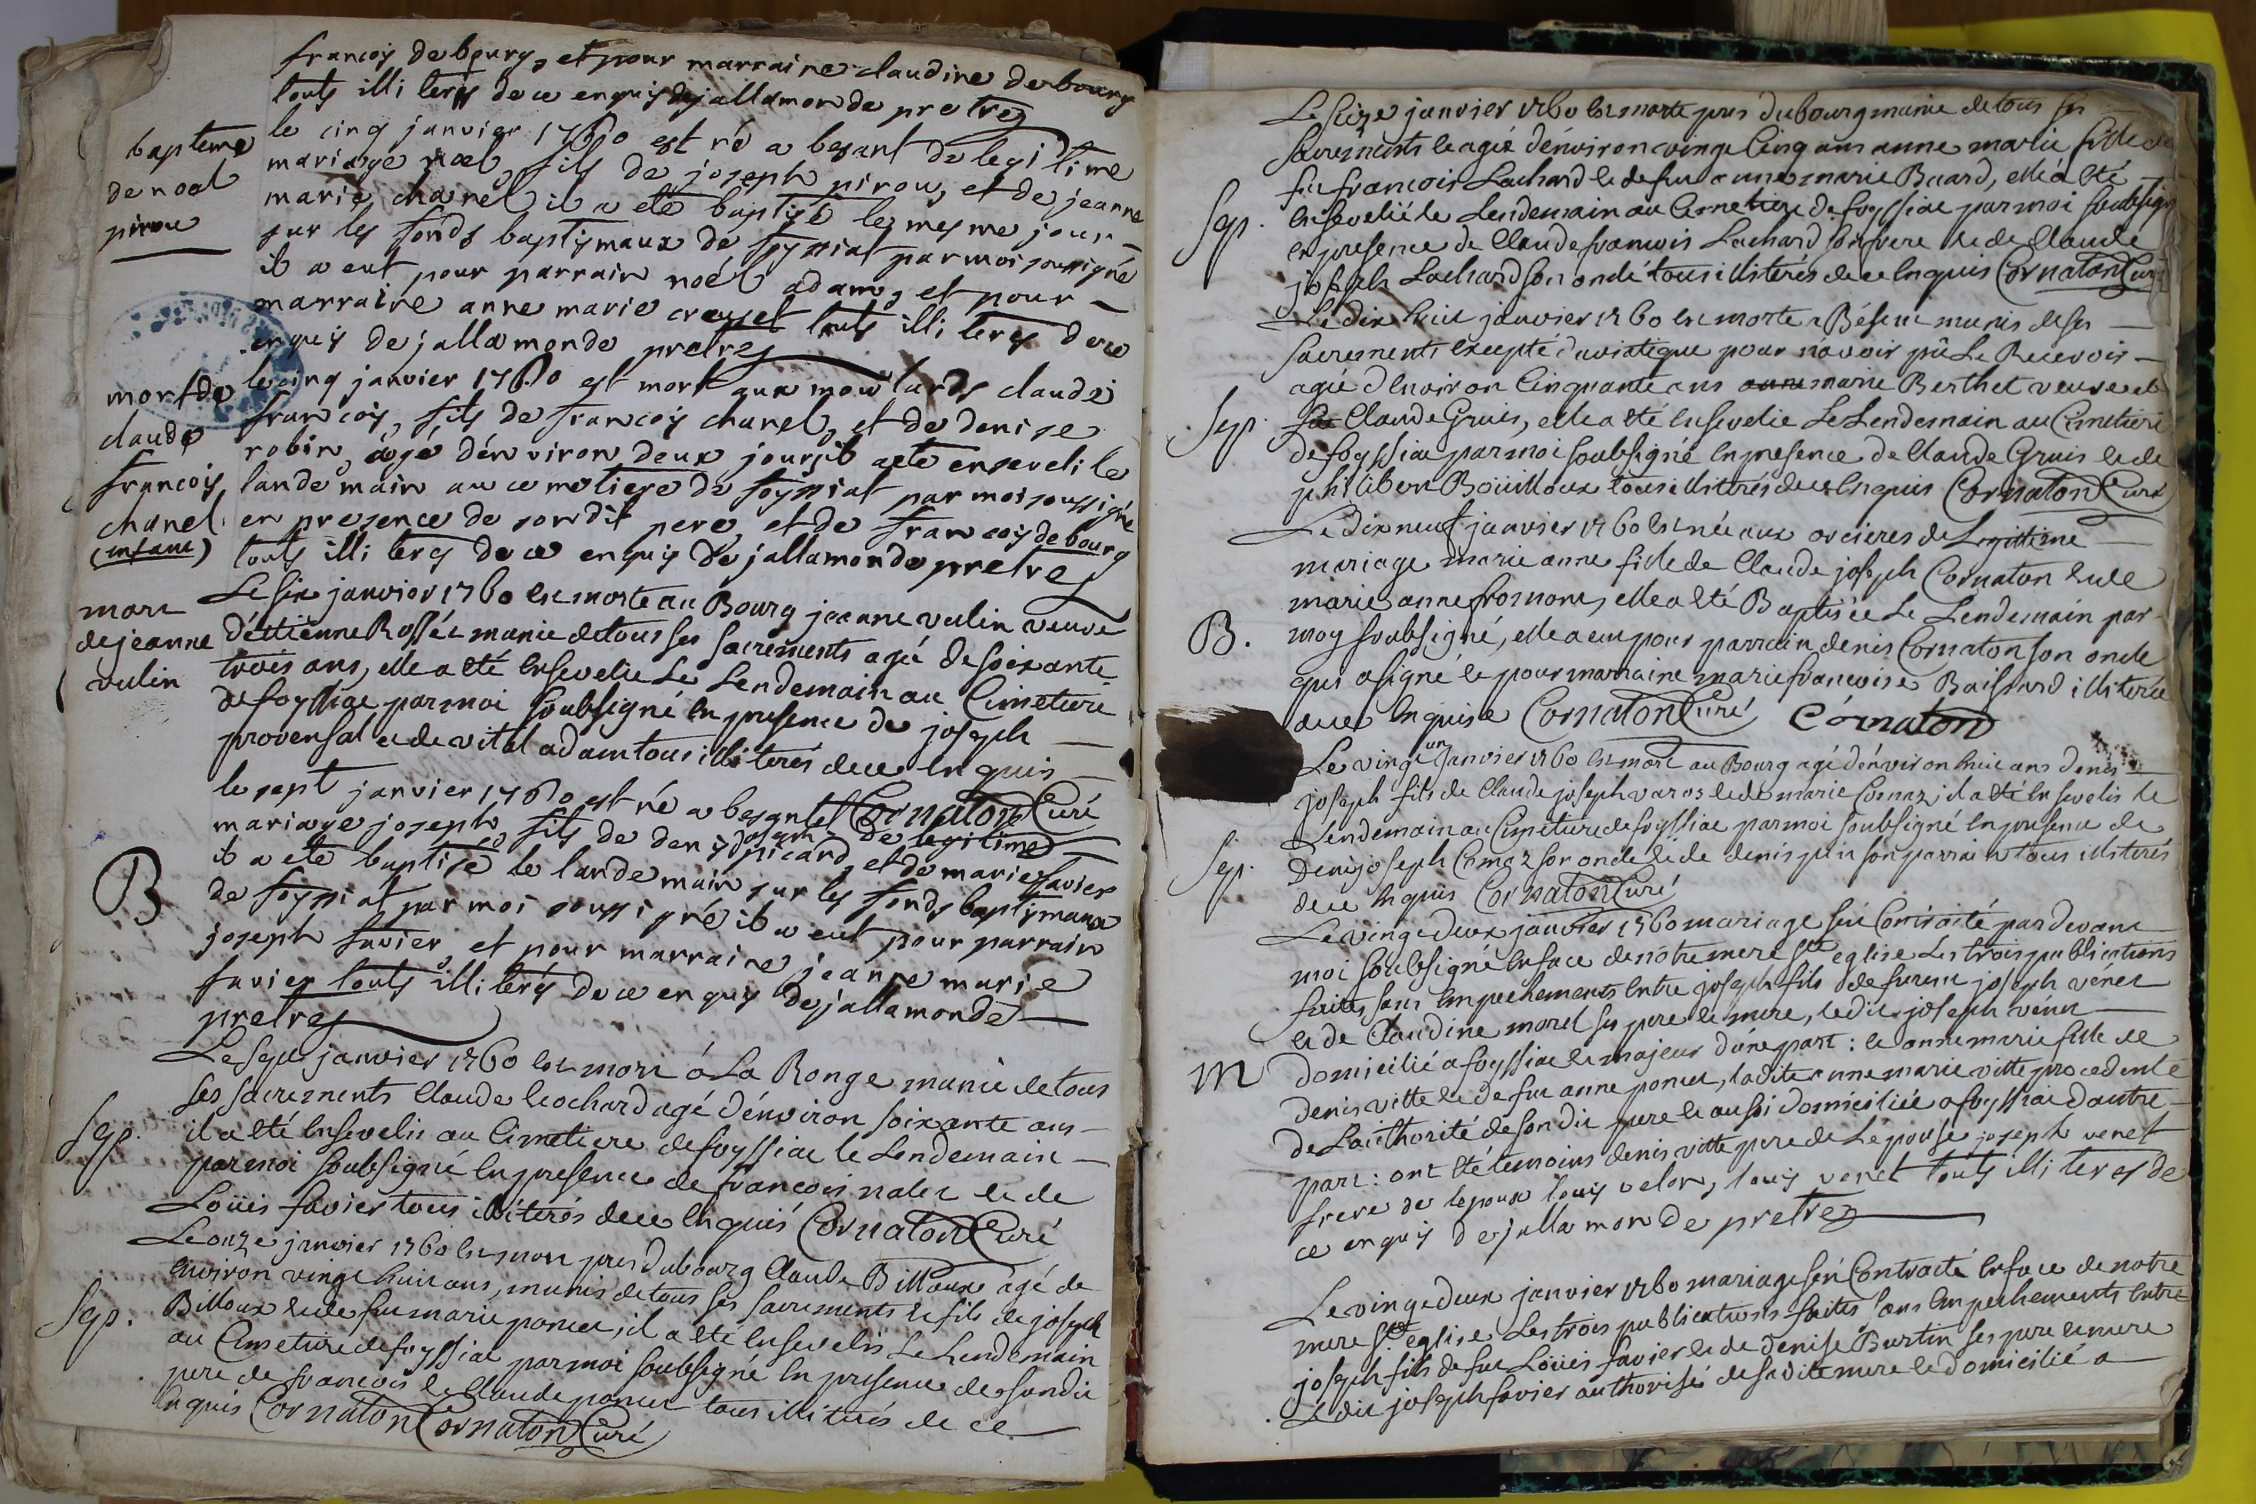 francois debourg, et pour marraine claudine debourg
touts illiterés de ce enquis dejallamonde pretre
bapteme
de noel
pirou
le cinq janvier 1760 est né a besant de legitime
mariage noel, fils de joseph pirou, et de jeanne
marie chanel il a eté baptisé les mesme jour
sur les fonds baptismaux de foyssiat par moi soussigné
il a eut pour parrain noël adam, et pour
marraine anne marie creuset touts illiterés de ce
enquis dejallamonde pretre
mort de
claude
francois
chanel
(enfant)
le cinq janvier 1760 est mort aux moulards claude
francois, fils de francois chanel, et de denise
robin, âgé d'environ deux jours, il a eté enseveli le
landemain au cemetiere de foyssiat par moi soussigné
en presence de sondit pere, et de francois debourg
touts illiterés de ce enquis dejallamonde pretre
mort
de jeanne
vulin
Le six janvier 1760 est morte au Bourg jeanne vulin veuve
d'ettienne Rosset munie de tous ses sacrements agé de soixante
trois ans, elle a été ensevelie Le Lendemain au Cimetiere
de foyssiac par moi soubsigné en presence de joseph
provensal et de vital adam tous illiterés de ce enquis
Cornaton Curé
B
le sept janvier 1760 est né a besant de legitime
mariage joseph, fils de denis joseph picard, et de marie favier
il a eté baptisé le landemain sur les fonds baptismaux
de foyssiat par moi soussigné il a eut pour parrain
joseph favier, et pour marraine jeanne marie
favier touts illiterés de ce enquis dejallamonde
pretre
Sep.
Le sept janvier 1760 est mort á La Ronge munie de tous
ses sacrements Claude Leochard agé d'environ soixante ans
il a été ensevelis au Cimetiere de foyssiac le Lendemain
par moi soubsigné en presence de francois nalet et de
Loüis favier tous illiterés de ce enquis Cornaton Curé
Sep.
Le onze janvier 1760 est mort pres du bourg Claude Billoux agé de
environ vingt huit ans, munis de tous ses sacrements et fils de joseph
Billoux et de fue marie poncet, il a été ensevelis Le Lendemain
au Cimetiere de foyssiac par moi soubsigné en presence de sondit
pere de francois et Claude poncet tous illiterés de ce
enquis Cornaton Cornaton Curé
Sep.
Le seize janvier 1760 est morte pres du bourg munie de tous ses
sacrements et agée d'environ vingt Cinq ans anne marie fille de
fu francois Lachard et de fue anne marie Buard, elle á été
Ensevelié le Lendemain au Cimetiere de foyssiac par moi soubsigné
en presence de Claude francois Lachard son frere et de Claude
joseph Lachard son oncle tous illiterés de ce enquis Cornaton Curé
Sep.
Le dix huit janvier 1760 est morte a Bésent munie de ses
sacrements Excepté du viatique pour n'avoir pû Le Recevoir
agée d'Environ Cinquante ans anne marie Berthet veuve de
Claude Gruis, elle a été ensevelie Le Lendemain au Cimetiere
de foyssiac par moi soubsigné en presence de Claude Gruis et de
philibert Boüilloux tous illiterés de ce enquis Cornaton Curé
B.
Le dix neuf janvier 1760 est née aux orcieres de Legittime
mariage marie anne fille de Claude joseph Cornaton et de
marie anne fromont, elle a été Baptisée Le Lendemain par
moy soubsigné, elle a eu pour parrain denis Cornaton son oncle
qui a signé et pour marraine marie francoise Buissard illiterée
de ce enquise Cornaton Curé Cornaton
Sep.
Le vingt un janvier 1760 est mort au Bourg agé d'environ huit ans denis
joseph fils de Claude joseph varoz et de marie Comaz, il a été ensevelis le
Lendemain au Cimetiere de foyssiac par moi soubsigné en presence de
Denis joseph Comaz son oncle et de denis son parrain tous illiterés
de ce enquis Cornaton Curé
M
Le vingt deux janvier 1760 mariage sut Contracté par devant
moi soubsigné En face de nôtre mere Ste eglise Les trois publications
faites sans Empechements Entre joseph fils de joseph vénet
et de Claudine morel ses pere et mere, ledit joseph vénet
domicilié a foyssiac et majeur d'une part : et anne marie fille de
denis vitte et de fue anne poncet, ladite anne marie vitte procedente
de L'authorité de son dit pere et aussi domiciliée a foyssiac d'autre
part : ont été temoins denis vitte pere de L'épouse joseph venet
frere de l'epoux louis velon, louis venet touts illiterés de
ce enquis dejallamonde pretre
Le vingt deux janvier 1760 mariage sut Contracté En face de notre
mere Ste eglise Les trois publications faites sans Empechements Entre
joseph fils de fue Loüis favier et de denise Burtin ses pere et mere
Ledit joseph favier authorisé de sadite mere et domicilié a